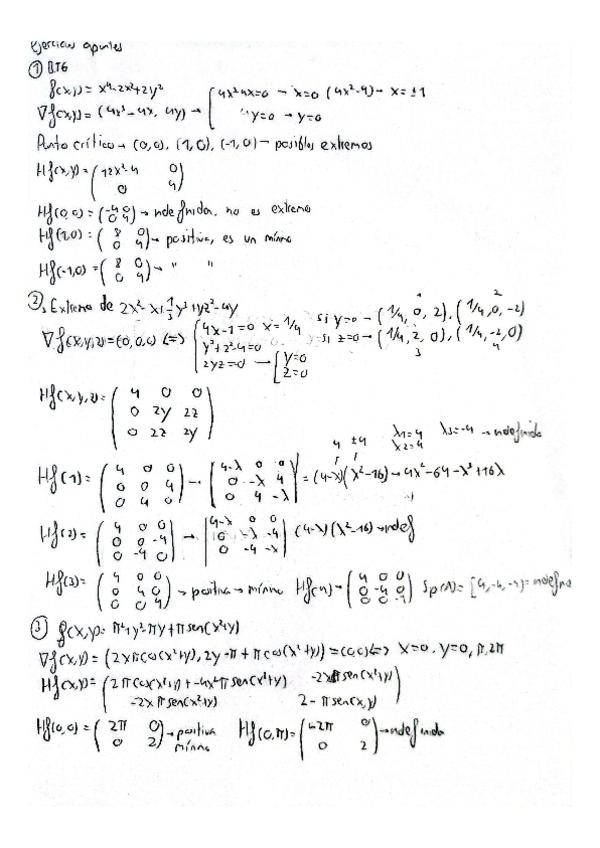 Ejercicios apuntes
① BT6
f(x,y) = x⁴-2x²+2y²
∇f(x,y) = (4x³-4x, 4y) → { 4x³-4x=0 → x=0 (4x²-4) → x=±1
4y=0 → y=0
Punto crítico → (0,0), (1,0), (-1,0) → posibles extremos
Hf(x,y) = (12x²-4 0
0 4)
Hf(0,0) = (-4 0
0 4) → indefinida, no es extremo
Hf(1,0) = (8 0
0 4) → positiva, es un mínimo
Hf(-1,0) = (8 0
0 4) → " "
② Extremo de 2x²-x+1/3y³+yz²-4y
∇f(x,y,z) = (0,0,0) <=> { 4x-1=0 x=1/4 si y=0 → (1/4, 0, 2), (1/4, 0, -2)
y²+z²-4=0 si z=0 → (1/4, 2, 0), (1/4, -2, 0)
2yz=0 → [y=0
z=0
Hf(x,y,z) = (4 0 0
0 2y 2z
0 2z 2y)
4 ±4 λ1=4 λ2=4 λ3=-4 → indefinida
Hf(1) = (4 0 0
0 0 4
0 4 0) → |4-λ 0 0
0 -λ 4
0 4 -λ| = (4-λ)(λ²-16) → 4λ²-64-λ³+16λ
Hf(2) = (4 0 0
0 0 -4
0 -4 0) → |4-λ 0 0
0 -λ -4
0 -4 -λ| (4-λ)(λ²-16) → indef
Hf(3) = (4 0 0
0 4 0
0 0 4) → positiva → mínimo Hf(4) → (4 0 0
0 -4 0
0 0 -4) Sp(A) = [4,-4,-4] = indefina
③ f(x,y) =
∇f(x,y) = (2xπcos(x²+y), 2y-π+πcos(x²+y)) = (0,0) <=> x=0, y=0, π, 2π
Hf(x,y) = (2πcos(x²+y)+-4x²πsen(x²+y) -2xπsen(x²+y)
-2xπsen(x²+y) 2-πsen(x,y))
Hf(0,0) = (2π 0
0 2) → positiva mínimo Hf(0,π) = (-2π 0
0 2) → indefinida